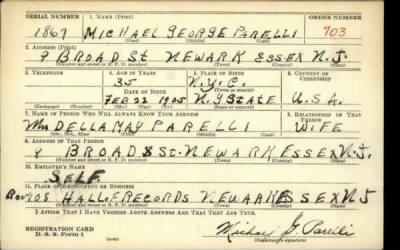 SERIAL NUMBER 1. NAME (Print) ORDER NUMBER
1867 MICHAEL GEORGE PARELLI 703
(First) (Middle) (Last)
2. ADDRESS (Print)
9 BROAD St NEWARK ESSEX N.J.
(Number and street or R. F. D. number) (Town) (County) (State)
3. TELEPHONE 4. AGE IN YEARS 5. PLACE OF BIRTH 6. COUNTRY OF CITIZENSHIP
35 N.Y.C.
DATE OF BIRTH (Town or county)
FEB 22 1905 N.Y STATE U.S.A.
(Exchange) (Number) (Mo.) (Day) (Yr.) (State or country)
7. NAME OF PERSON WHO WILL ALWAYS KNOW YOUR ADDRESS 8. RELATIONSHIP OF THAT PERSON
Mrs DELLA MAY PARELLI WIFE
(Mr., Mrs., Miss) (First) (Middle) (Last)
9. ADDRESS OF THAT PERSON
9 BROAD St. NEWARK ESSEX N.J.
(Number and street or R. F. D. number) (Town) (County) (State)
10. EMPLOYER'S NAME
SELF
11. PLACE OF EMPLOYMENT OR BUSINESS
908 HALL OF RECORDS NEWARK ESSEX NJ
(Number and street or R. F. D. number) (Town) (County) (State)
I AFFIRM THAT I HAVE VERIFIED ABOVE ANSWERS AND THAT THEY ARE TRUE.
REGISTRATION CARD
D. S. S. Form 1 (over) Michael G Parelli
(Registrant's signature)